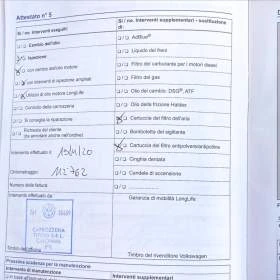 Attestato n° 5
Si / no Interventi eseguiti
Si / no. Interventi supplementari - sostituzione di:
Cambio dell'olio
AdBlue®
Ispezione
Liquido dei freni
con cambio dell'olio motore
Filtro del carburante per i motori diesel
con interventi di ispezione ampliati
Filtro del gas
Utilizzo di olio motore LongLife
Olio del cambio: DSG®, ATF
Controllo della carrozzeria
Olio della frizione Haldex
Si consiglia la riparazione
Cartuccia del filtro dell'aria
Richiesta del cliente
(da annotare anche nell'ordine)
Bomboletta del sigillante
Cartuccia del filtro antipolvere/antipolline
Intervento effettuato il
Cinghia dentata
Chilometraggio
112762
Candele di accensione
Numero della fattura
Intervento effettuato da
Garanzia di mobilità LongLife
CARROZZERIA
Timbro dell'officina
Timbro del rivenditore Volkswagen
Prossima scadenza per la manutenzione
Intervento di manutenzione
Interventi supplementari